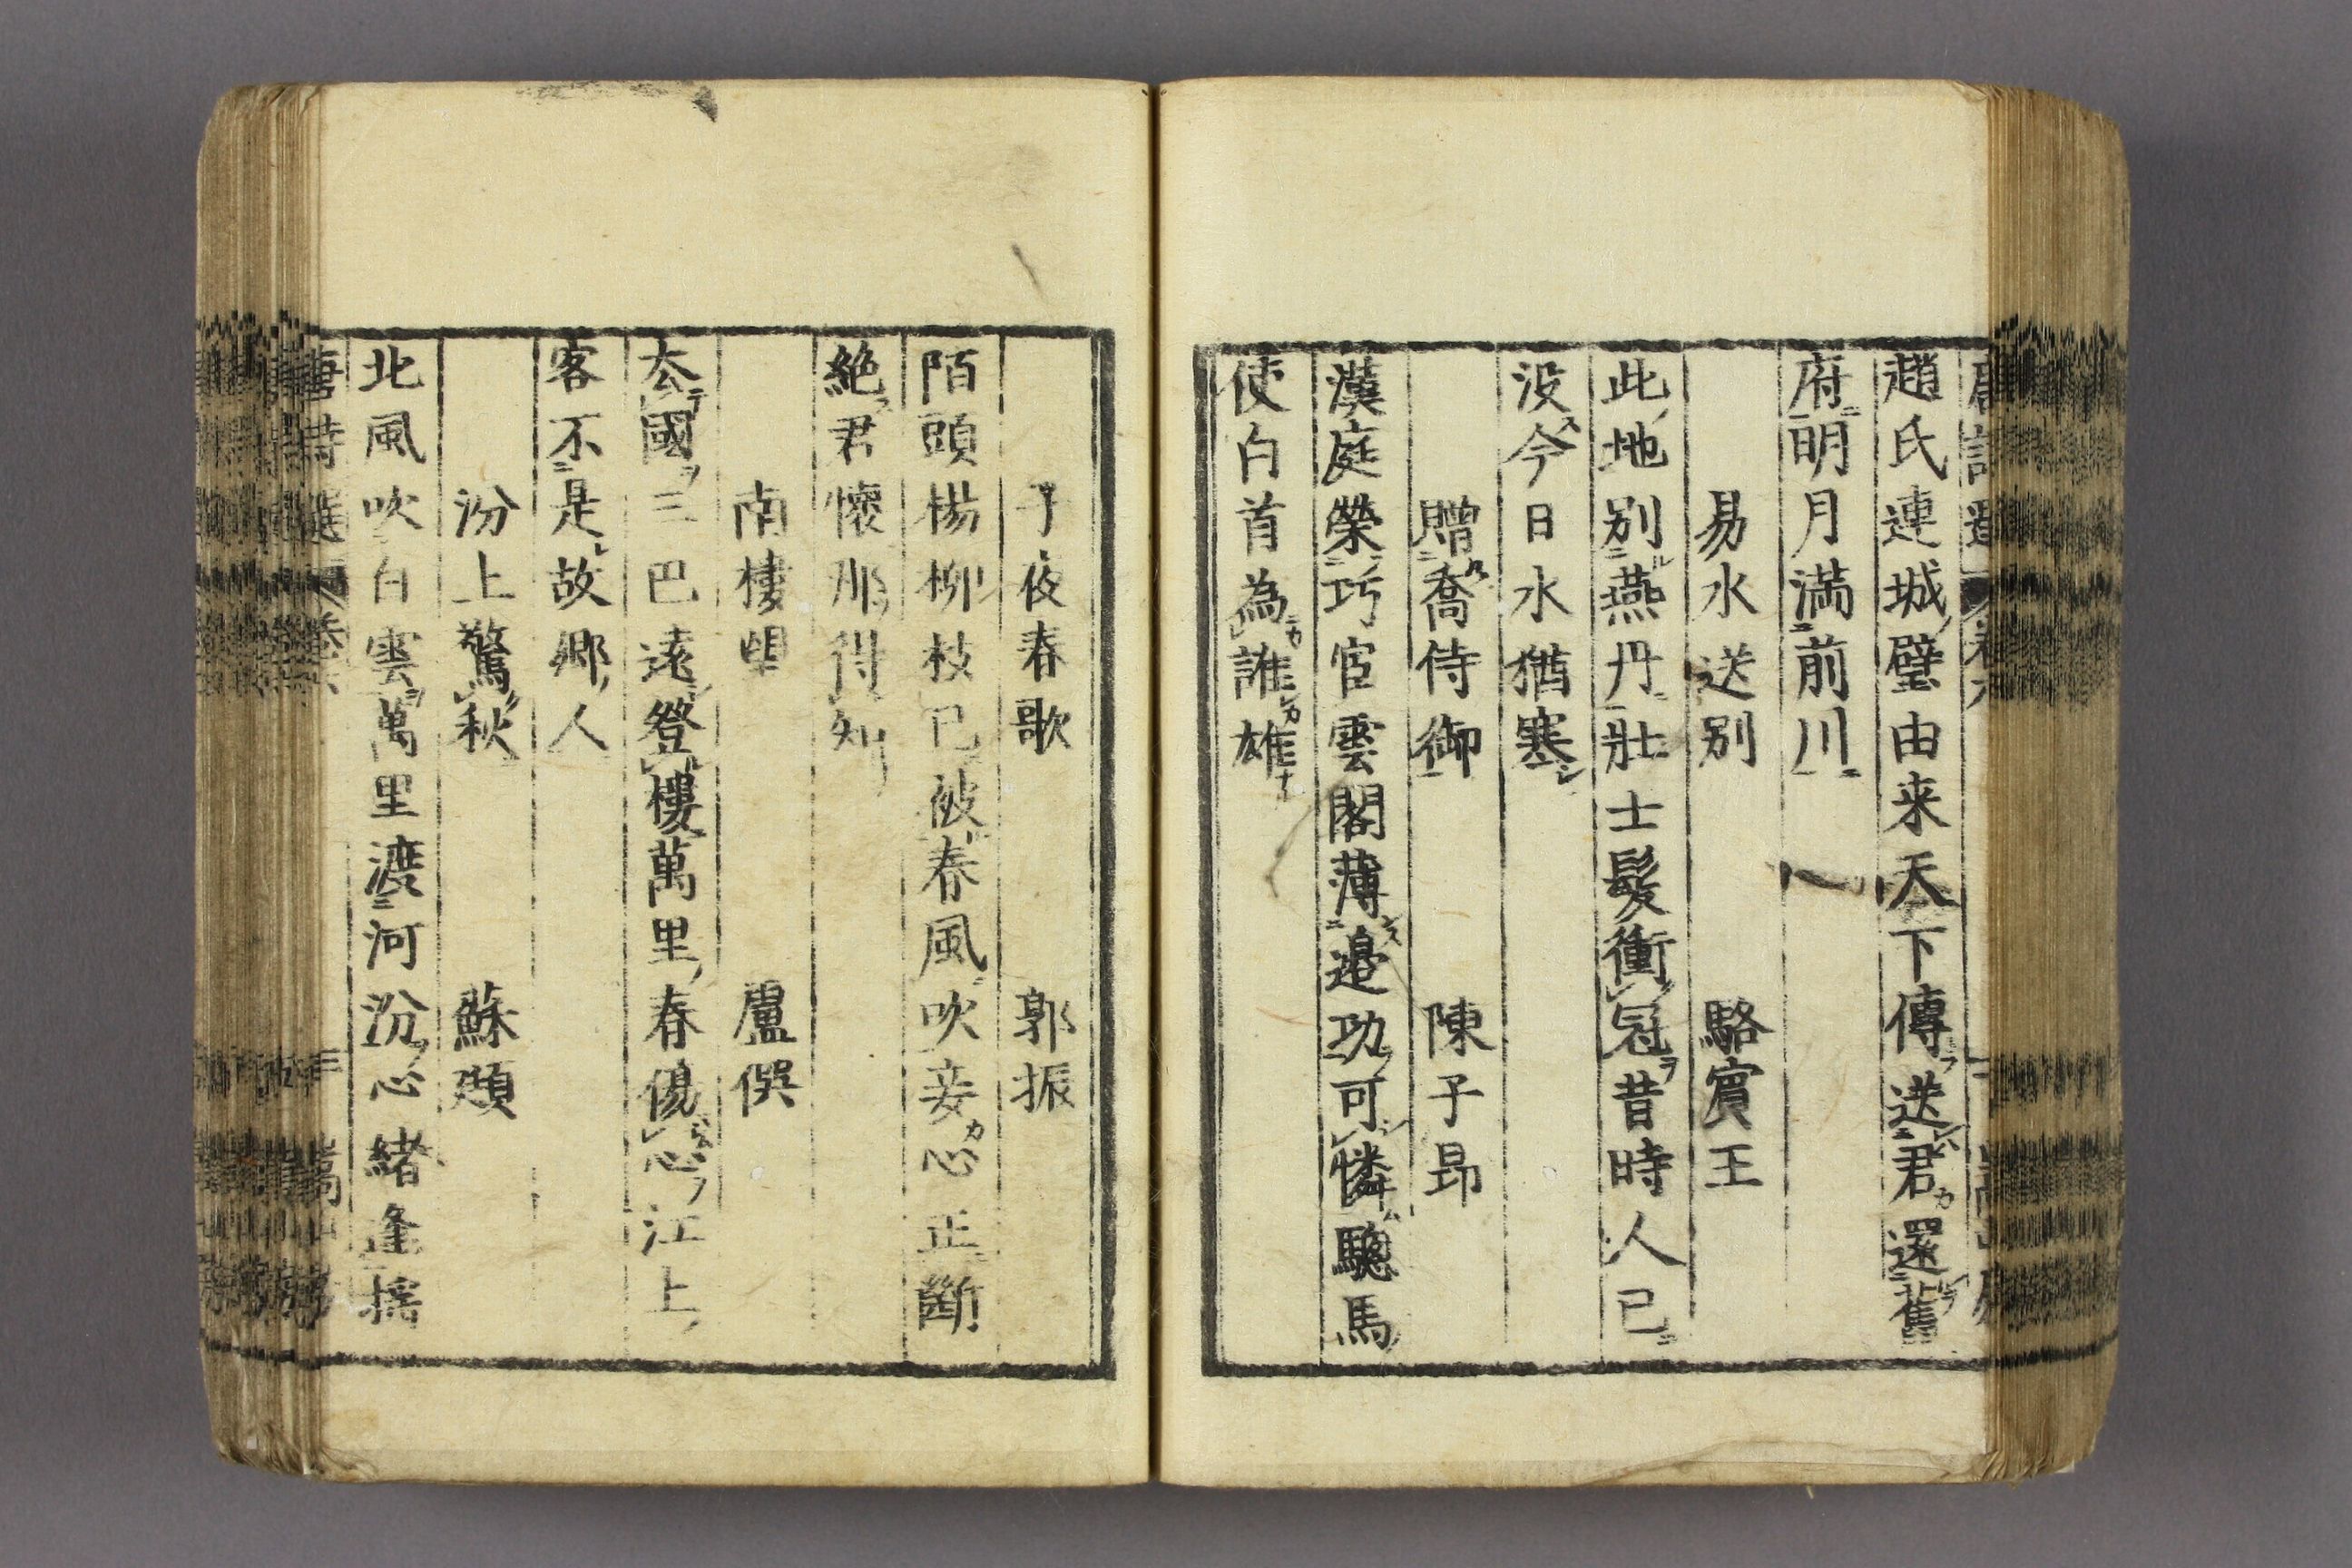 趙氏連城璧由来天下傳送君還舊
府明月満前川
易水送别 駱賓王
此地别燕丹壯士髮衝冠昔時人已
没今日水猶寒
贈喬侍御 陳子昻
漢庭榮巧宦雲閣薄邉功可憐驄馬
使白首為誰雄
子夜春歌 郭振
陌頭楊柳枝已被春風吹妾心正斷
絶君懐那得知
南樓望 盧僎
去國三巴遠登樓萬里春傷心江上
客不是故郷人
汾上驚秋 蘇頲
北風吹白雲萬里渡河汾心緒逢揺
唐詩選 卷六